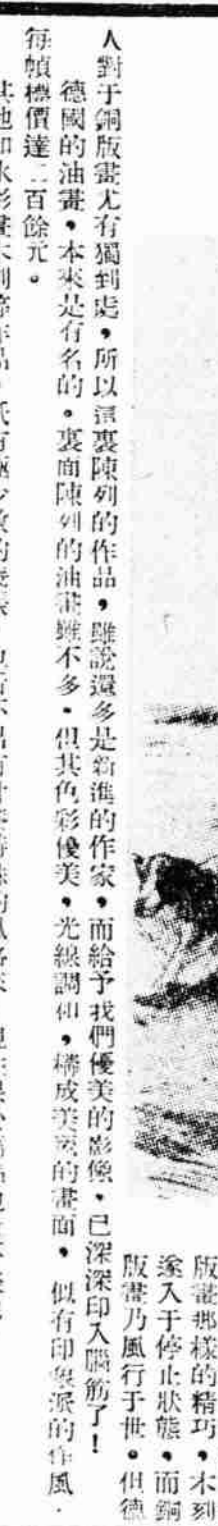 版畫那樣的精巧,木刻
遂入于停止狀態,而銅
版畫乃風行于世。但德
人對于銅版畫尤有獨到處,所以這裏陳列的作品,雖說還多是新進的作家,而給予我們優美的影像,已深深印入腦筋了!
德國的油畫,本來是有名的。裏面陳列的油畫雖不多,但其色彩優美,光線調和,構成美麗的畫面,似有印象派的作風,
每幀標價達二百餘元。